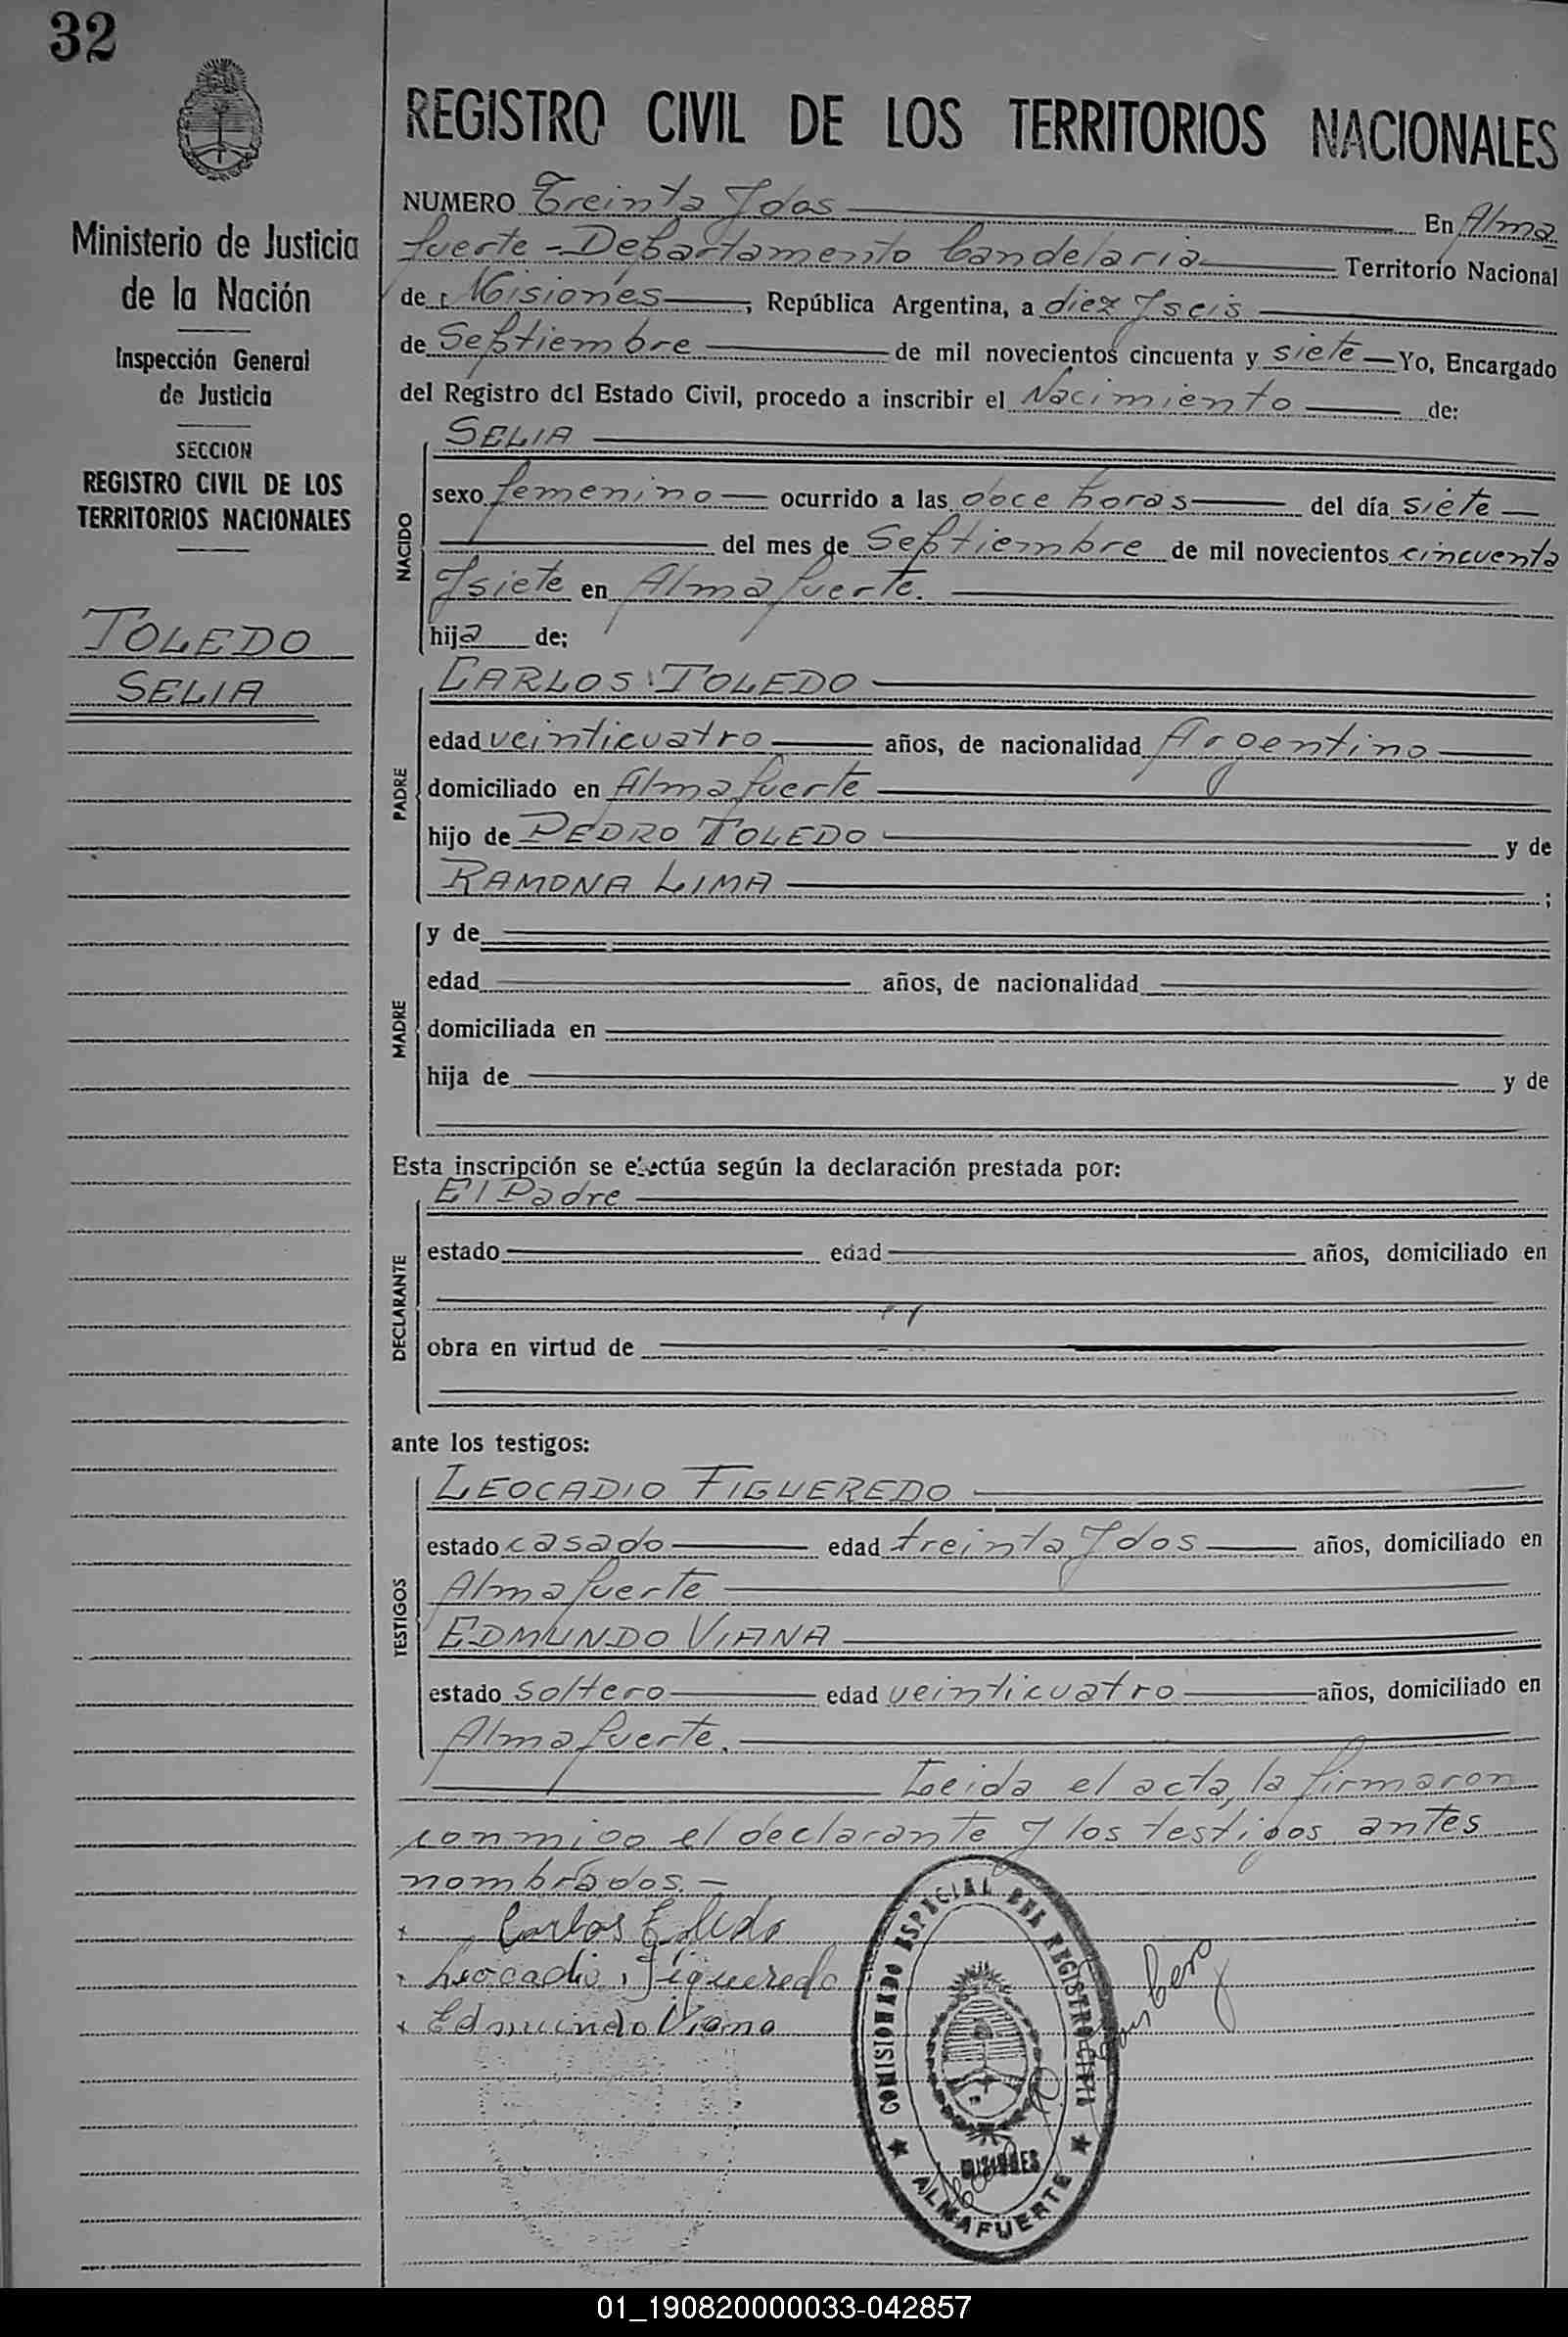 32
Ministerio de Justicia
de la Nación
Inspección General
de Justicia
SECCION
REGISTRO CIVIL DE LOS
TERRITORIOS NACIONALES
TOLEDO
SELIA
REGISTRO CIVIL DE LOS TERRITORIOS NACIONALES
NUMERO Treinta y dos En Alma
fuerte - Departamento Candelaria Territorio Nacional
de Misiones, República Argentina, a diez y seis
de Septiembre de mil novecientos cincuenta y siete Yo, Encargado
del Registro del Estado Civil, procedo a inscribir el Nacimiento de:
NACIDO
SELIA
sexo femenino ocurrido a las doce horas del día siete
del mes de Septiembre de mil novecientos cincuenta
y siete en Almafuerte.
hija de;
PADRE
CARLOS TOLEDO
edad veinticuatro años, de nacionalidad Argentino
domiciliado en Almafuerte
hijo de PEDRO TOLEDO y de
RAMONA LIMA ;
MADRE
y de
edad años, de nacionalidad
domiciliada en
hija de y de
Esta inscripción se efectúa según la declaración prestada por:
DECLARANTE
El Padre
estado edad años, domiciliado en
obra en virtud de
ante los testigos:
TESTIGOS
LEOCADIO FIGUEREDO
estado casado edad treinta y dos años, domiciliado en
Almafuerte
EDMUNDO VIANA
estado soltero edad veinticuatro años, domiciliado en
Almafuerte.
Leida el acta, la firmaron
conmigo el declarante y los testigos antes
nombrados. -
Carlos Toledo
Leocadio Figueredo
Edmundo Viana
COMISIONADO ESPECIAL DEL REGISTRO CIVIL
MISIONES
ALMAFUERTE
01_190820000033-042857